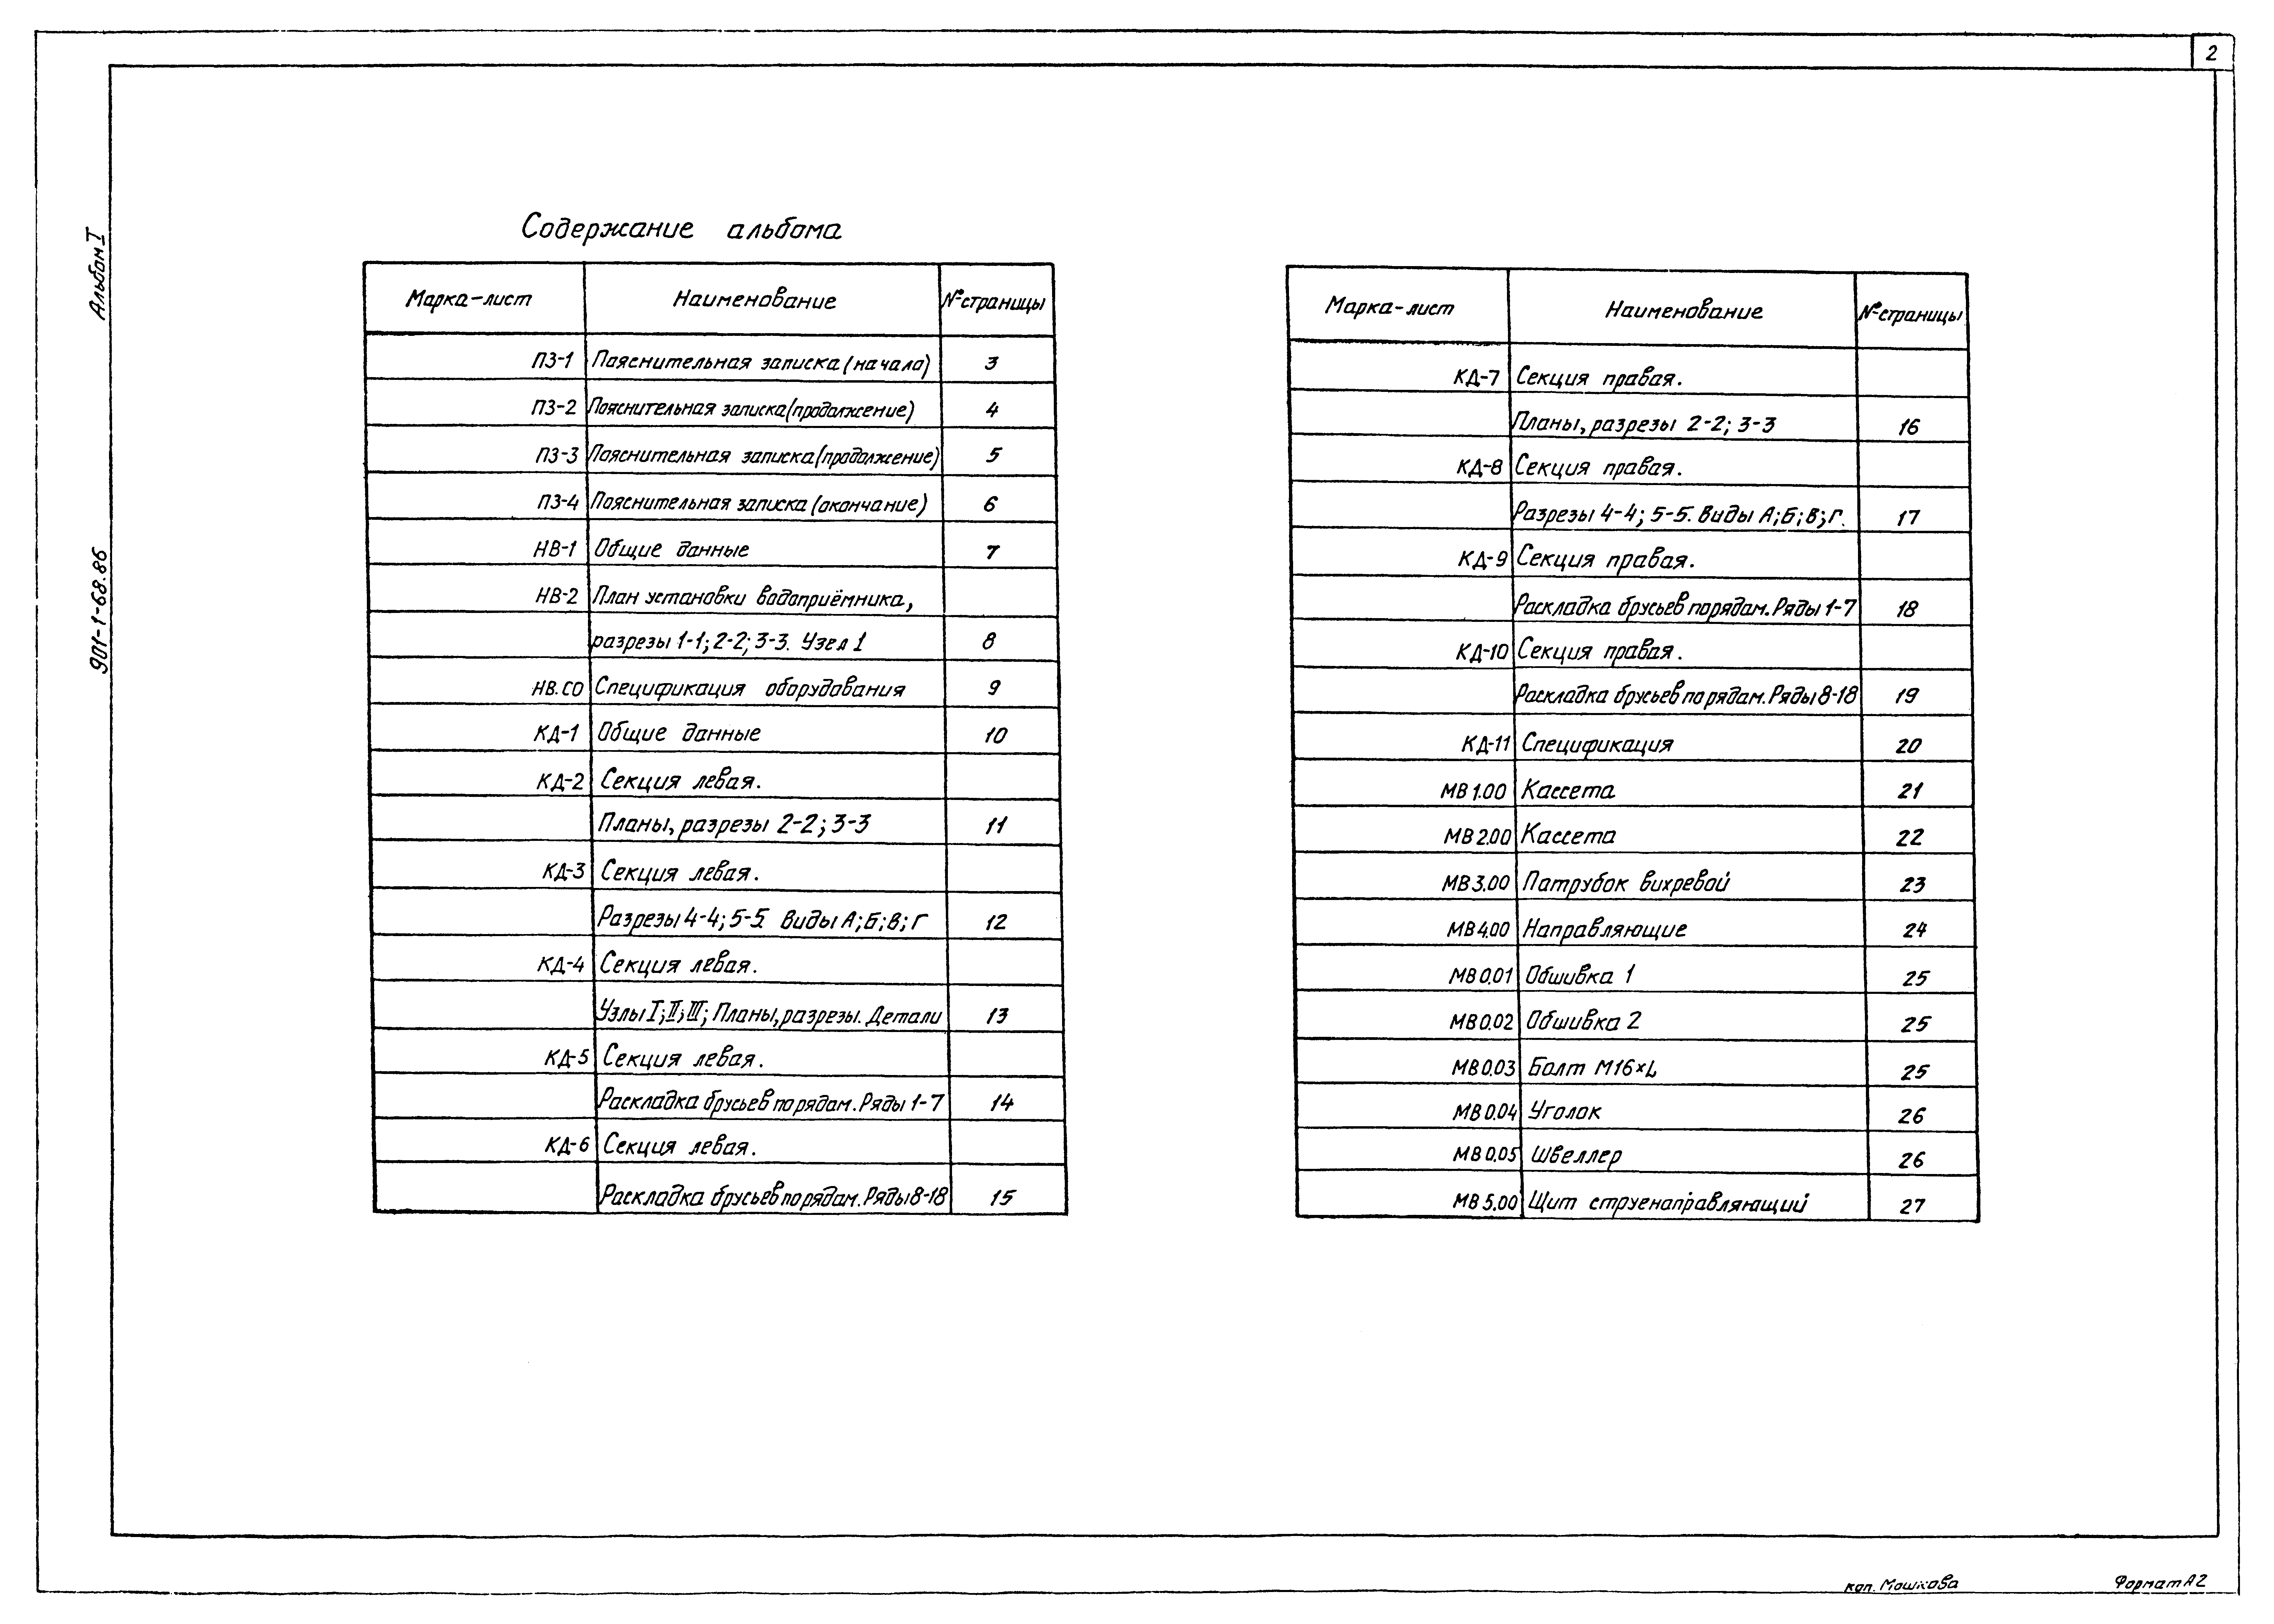 2
Альбом I
901-1-68.86
Содержание альбома
Марка-лист Наименование № страницы
ПЗ-1 Пояснительная записка (начало) 3
ПЗ-2 Пояснительная записка (продолжение) 4
ПЗ-3 Пояснительная записка (продолжение) 5
ПЗ-4 Пояснительная записка (окончание) 6
НВ-1 Общие данные 7
НВ-2 План установки водоприёмника,
разрезы 1-1; 2-2; 3-3. Узел 1 8
НВ.СО Спецификация оборудования 9
КД-1 Общие данные 10
КД-2 Секция левая.
Планы, разрезы 2-2; 3-3 11
КД-3 Секция левая.
Разрезы 4-4; 5-5. Виды А; Б; В; Г 12
КД-4 Секция левая.
Узлы I; II; III; Планы, разрезы. Детали 13
КД-5 Секция левая.
Раскладка брусьев по рядам. Ряды 1-7 14
КД-6 Секция левая.
Раскладка брусьев по рядам. Ряды 8-18 15
Марка-лист Наименование № страницы
КД-7 Секция правая.
Планы, разрезы 2-2; 3-3 16
КД-8 Секция правая.
Разрезы 4-4; 5-5. Виды А; Б; В; Г. 17
КД-9 Секция правая.
Раскладка брусьев по рядам. Ряды 1-7 18
КД-10 Секция правая.
Раскладка брусьев по рядам. Ряды 8-18 19
КД-11 Спецификация 20
МВ 1.00 Кассета 21
МВ 2.00 Кассета 22
МВ 3.00 Патрубок вихревой 23
МВ 4.00 Направляющие 24
МВ 0.01 Обшивка 1 25
МВ 0.02 Обшивка 2 25
МВ 0.03 Болт М16×L 25
МВ 0.04 Уголок 26
МВ 0.05 Швеллер 26
МВ 5.00 Щит струенаправляющий 27
кол. Мошкова Формат А2